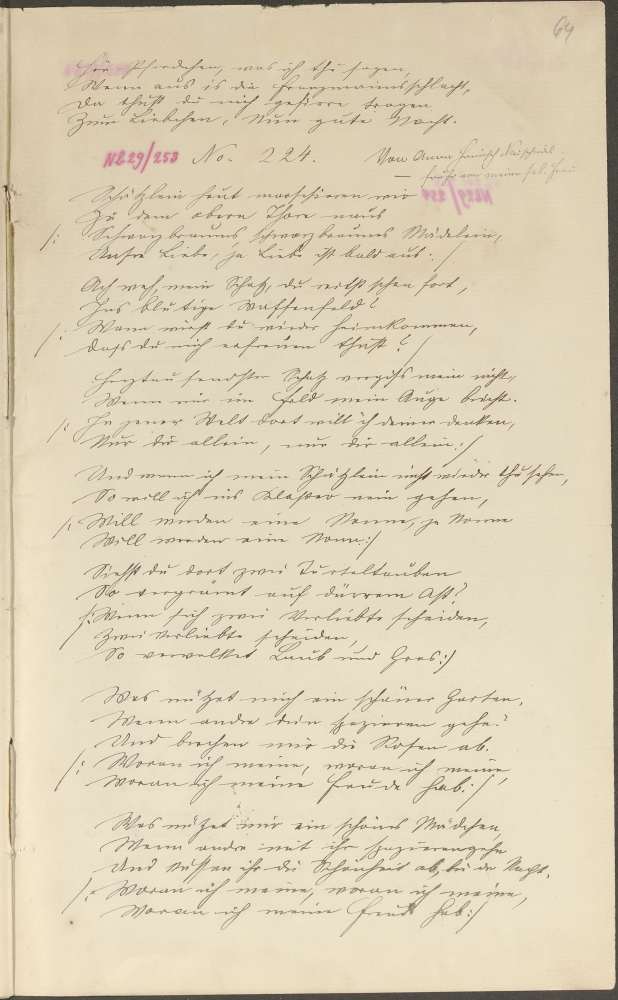 64
Hör Pferdchen, was ich thu sagen,
Wenn aus is die Franzmannsschlacht,
Da thust du mich geschwre tragen
Zum Liebchen, Nun gute Nacht.
NL29/253 No. 224. Von Anna
Schätzlein heut marschieren wir
Zu dem obern Thore naus
/: Schwarzbrauns schwarzbraunes Mädelein,
Unsre Liebe, ja Liebe ist bald aus :/
Ach weh, mein Schatz, du reitst schon fort,
Ins blutige Waffenfeld!
/: Wann wirst du wieder heimkommen,
Dass du mich erfreuen thust? :/
Herztausendster Schatz vergiss mein nicht,
Wenn mir im Feld mein Auge bricht.
/: In jener Welt dort will ich deiner denken,
Nur dir allein, nur dir allein :/
Und wenn ich mein Schätzlein nicht wieder thu sehen,
So will ich ins Kloster nein gehen,
/: Will werden eine Nonne, ja Nonne
Will werden eine Nonn :/
Siehst du dort zwei Turteltauben
So vergrämt auf dürrem Ast?
/: Wenn sich zwei Verliebte scheiden,
Zwei Verliebte scheiden,
So verwelket Laub und Gras :/
Was nützet mich ein schöner Garten,
Wenn andre drin spazieren gehn?
Und brechen mir die Rosen ab.
/: Woran ich meine, woran ich meine,
Woran ich meine Freude hab :/
Was nützet mir ein schönes Mädchen,
Wenn andre mit ihr spazierengehn
Und küssen ihr die Schönheit ab, bei der Nacht.
/: Woran ich meine, woran ich meine,
Woran ich meine Freud hab :/